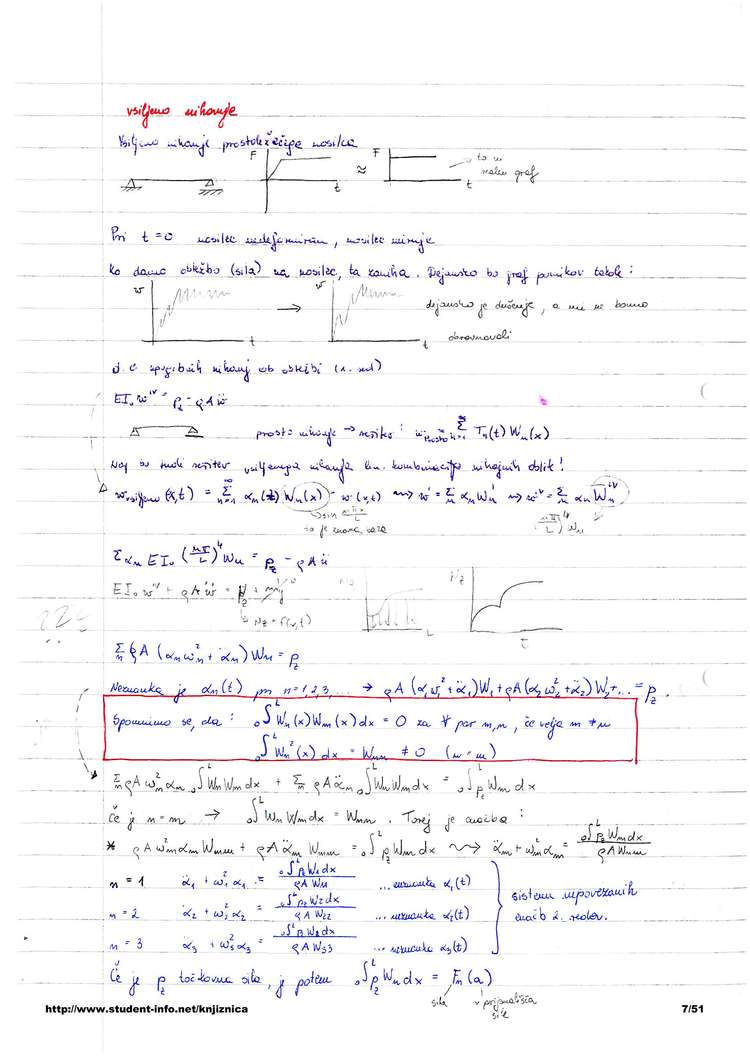 vsiljeno nihanje
Vsiljeno nihanje prostoležečega nosilca
F t ≈ F t to ni realen graf
Pri t = 0 nosilec nedeformiran, nosilec miruje
Ko damo obtežbo (sila) na nosilec, ta zaniha. Dejansko bo graf pomikov takole:
w t → w t dejansko je dušenje, a mi ne bomo
obravnavali
d.e. upogibnih nihanj ob obtežbi (1. red)
EI₀ wᴵⱽ = p_z - ρAẅ
prosto nihanje → rešitev: w_prosto = Σ_{n=1}^∞ T_n(t) W_n(x)
Naj bo tudi rešitev vsiljenega nihanja lin. kombinacija nihajnih oblik!
w_vsiljeno (x,t) = Σ_{n=1}^∞ α_n(t) W_n(x) = w(x,t) ⇝ w' = Σ_n α_n W_n' ⇝ wᴵⱽ = Σ_n α_n W_nᴵⱽ
sin nπx/L
to je znana baza
(nπ/L)⁴ W_n
Σ α_n EI₀ (nπ/L)⁴ W_n = p_z - ρAẅ
EI₀ wᴵⱽ + ρAẅ = p_z + m_y'
N_z = f(x,t)
L
N_z
τ
Σ_n ρA (α_n ω_n² + α̈_n) W_n = p_z
Neznanka je α_n(t) pri n = 1,2,3,... → ρA (α₁ω₁² + α̈₁)W₁ + ρA(α₂ω₂² + α̈₂)W₂ + ... = p_z.
Spomnimo se, da: ₀∫ᴸ W_n(x)W_m(x)dx = 0 za ∀ par m,n, če velja m ≠ n
₀∫ᴸ W_n²(x) dx = W_nn ≠ 0 (n = m)
Σ_n ρA ω_n² α_n ₀∫ᴸ W_n W_m dx + Σ_n ρA α̈_n ₀∫ᴸ W_n W_m dx = ₀∫ᴸ p_z W_m dx
Če je n = m → ₀∫ᴸ W_n W_m dx = W_nn. Torej je enačba:
* ρA ω_m² α_m W_mm + ρA α̈_m W_mm = ₀∫ᴸ p_z W_m dx ⇝ α̈_m + ω_m² α_m = ₀∫ᴸ p_z W_m dx / ρA W_mm
n = 1 α̈₁ + ω₁² α₁ = ₀∫ᴸ p_z W₁ dx / ρA W₁₁ ... neznanka α₁(t)
n = 2 α̈₂ + ω₂² α₂ = ₀∫ᴸ p_z W₂ dx / ρA W₂₂ ... neznanka α₂(t)
sistem nepovezanih
enačb 2. redov.
n = 3 α̈₃ + ω₃² α₃ = ₀∫ᴸ p_z W₃ dx / ρA W₃₃ ... neznanka α₃(t)
Če je p_z točkovna sila, je potem ₀∫ᴸ p_z W_n dx = F_n(a)
sila v prijemališču
sile
http://www.student-info.net/knjiznica 7/51